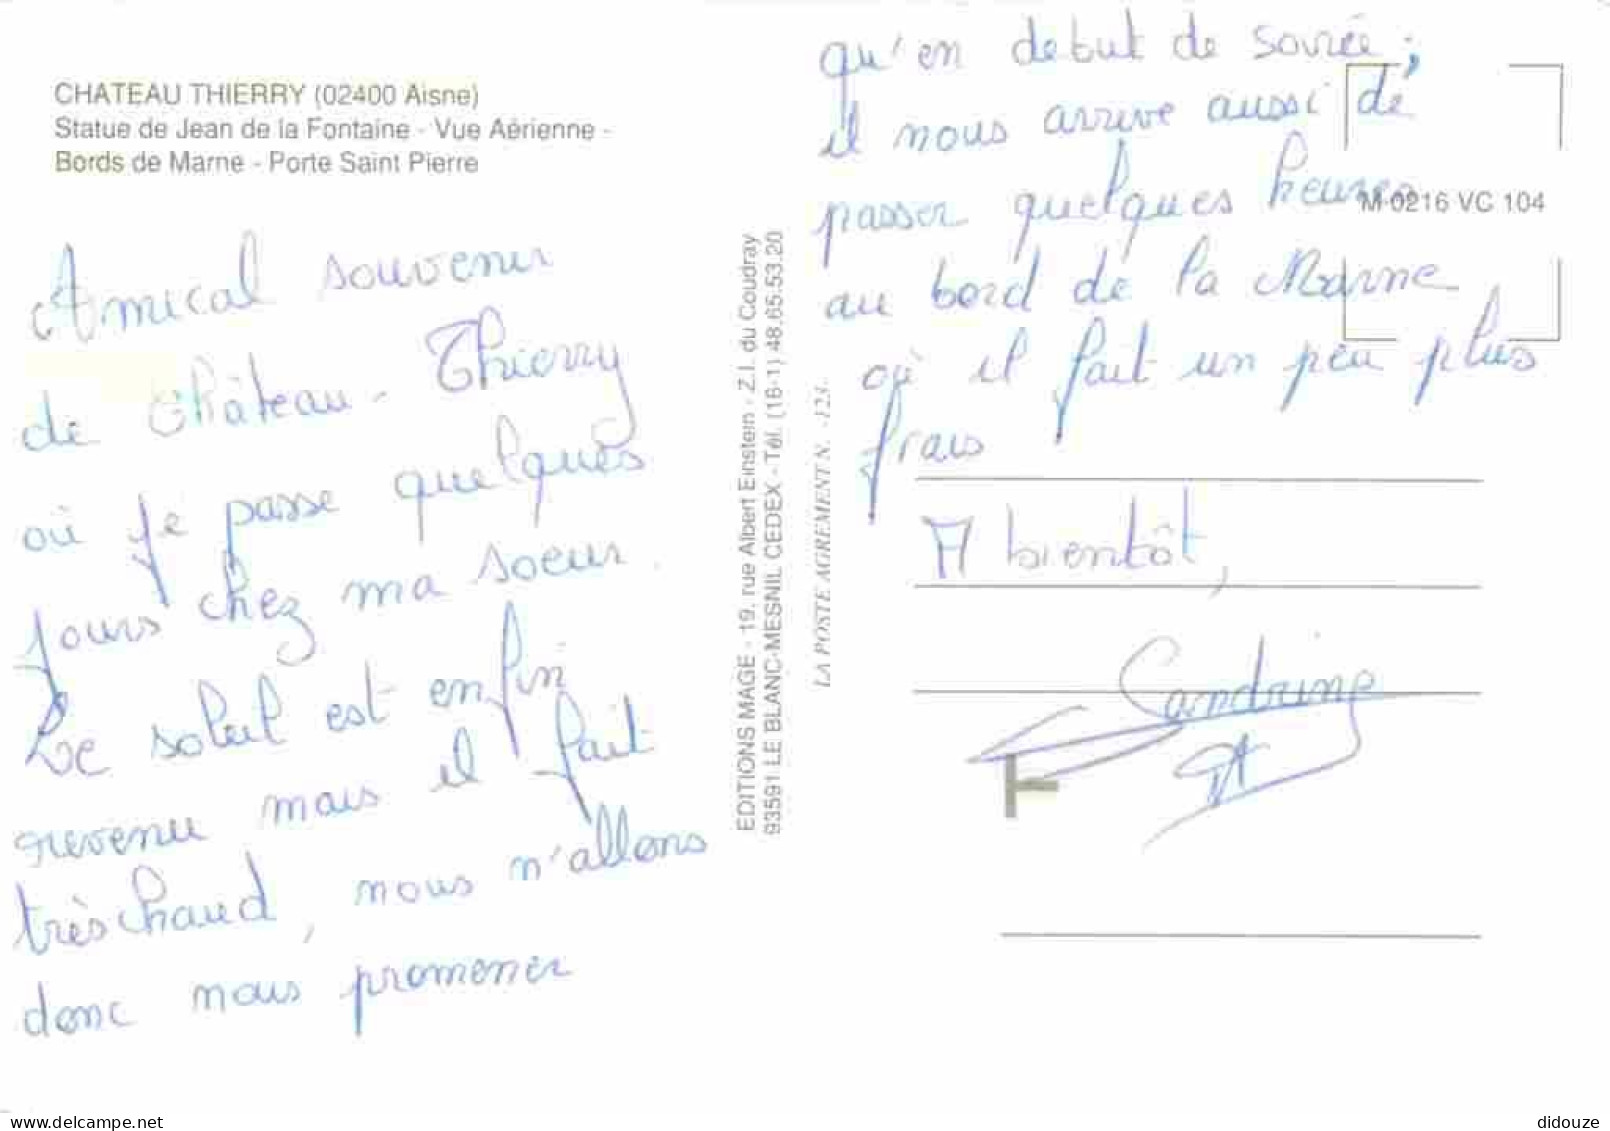 CHATEAU THIERRY (02400 Aisne)
Statue de Jean de la Fontaine - Vue Aérienne -
Bords de Marne - Porte Saint Pierre
Amical souvenir
de Château-Thierry
où je passe quelques
jours chez ma soeur.
Le soleil est enfin
revenu mais il fait
très chaud, nous n'allons
donc nous promener
EDITIONS MAGE - 19, rue Albert Einstein - Z.I. du Coudray
93591 LE BLANC-MESNIL CEDEX - Tél. (16-1) 48.65.53.20
LA POSTE AGREMENT N. -123-
qu'en debut de soirée ;
il nous arrive aussi de
passer quelques heures
M 0216 VC 104
au bord de la Marne
où il fait un peu plus
frais
A bientôt,
Sandrine
delcampe.net
didouze